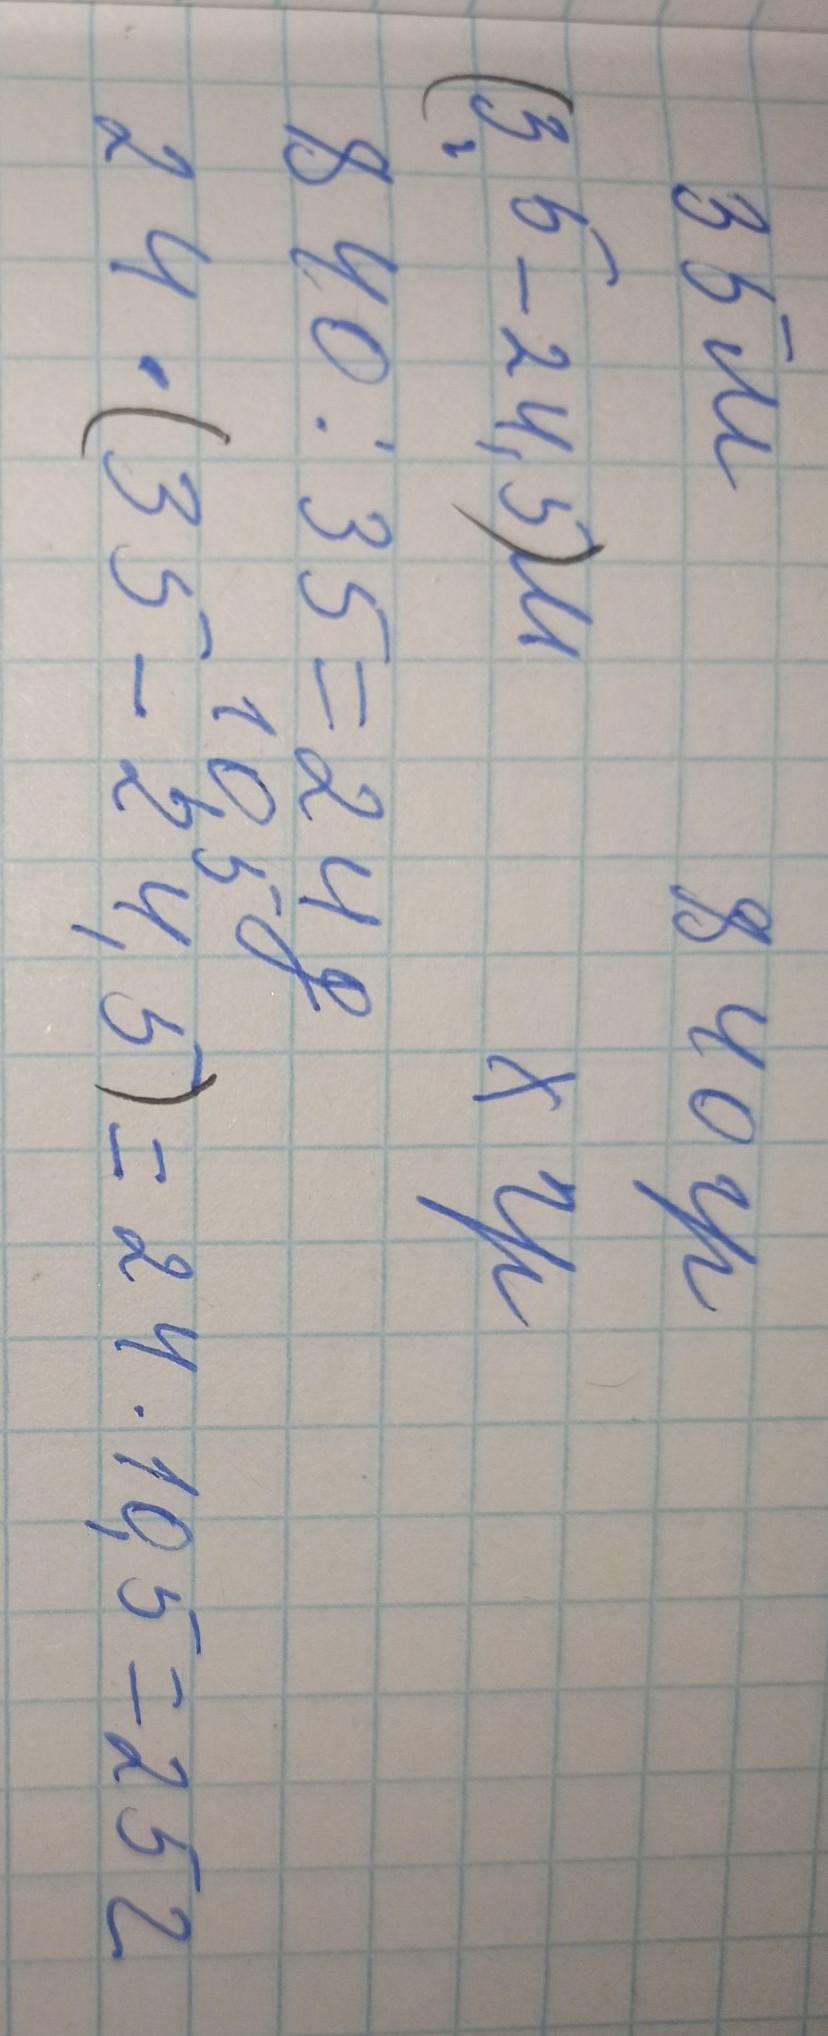 35 м 840
(35 - 24,5) м x
840 : 35 = 24
10,5
24 · (35 - 24,5) = 24 · 10,5 = 252